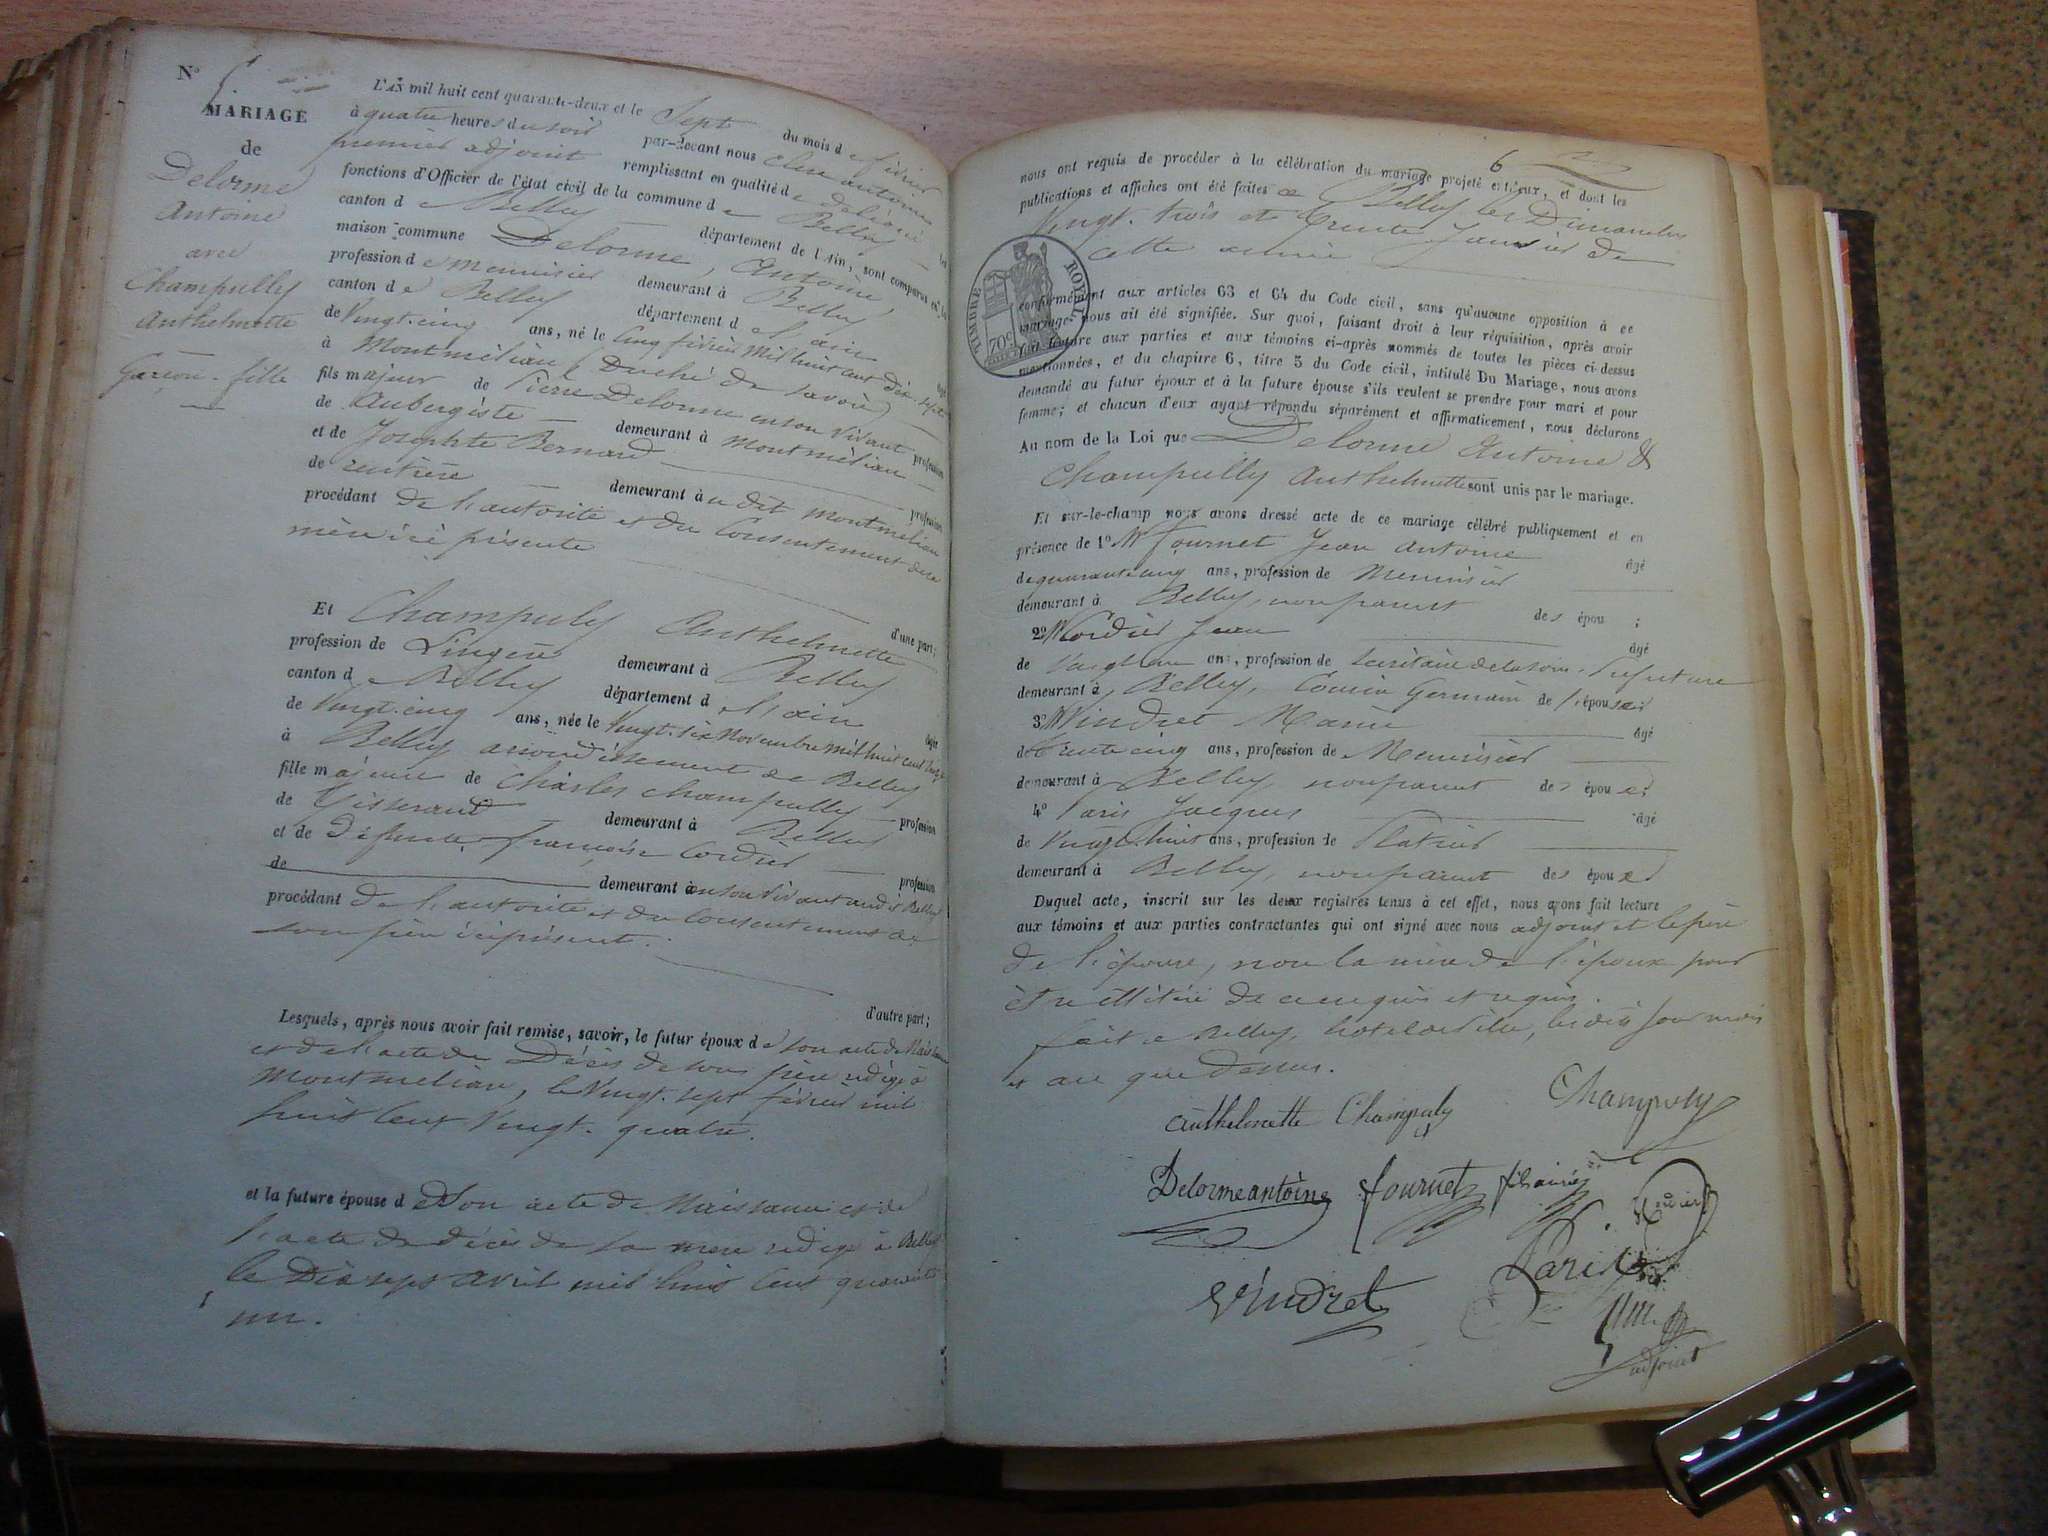 N° 5
MARIAGE
de
Delorme
Antoine
avec
Champully
Anthelmette
Garçon - fille
L'AN mil huit cent quarante-deux et le Sept du mois de février
à quatre heures du soir par-devant nous antoine
premier adjoint remplissant en qualité de délégué les
fonctions d'Officier de l'état civil de la commune de Belley
canton de Belley département de l'Ain, sont comparus en la
maison commune Delorme, Antoine,
profession de menuisier demeurant à Belley
canton de Belley département de l'ain âgé
de Vingt-cinq ans, né le Cinq février mil huit cent dix-sept
à Montmélian (Duché de Savoie)
fils majeur de Pierre Delorme en son vivant profession
de Aubergiste demeurant à Montmélian
et de Josephte Bernard profession
de rentière demeurant à u dit Montmélian
procédant de l'autorité et du Consentement de sa
mère ici présente
d'une part;
Et Champuly Anthelmette
profession de Lingère demeurant à Belley
canton de Belley département de l'ain âgée
de Vingt-cinq ans, née le Vingt-six Novembre mil huit cent
à Belley arrondissement de Belley
fille majeure de Charles Champully profession
de Tisserand demeurant à Belley
et de Défunte françoise Cordier profession
de demeurant à en son vivant audit Belley
procédant de l'autorité et du Consentement de
son père ici présent.
d'autre part;
Lesquels, après nous avoir fait remise, savoir, le futur époux de son acte de Naissance
et de l'acte de Décès de son père rédigé à
Montmélian, le Vingt-sept février mil
huit Cent Vingt-quatre.
et la future épouse de Son acte de Naissance et de
l'acte de décès de sa mère rédigé à Belley
le Dix sept avril mil huit Cent quarante
un.
6
nous ont requis de procéder à la célébration du mariage projeté entr'eux, et dont les
publications et affiches ont été faites à Belley les Dimanches
Vingt-trois et Trente Janvier de
cette année
TIMBRE ROYAL
70c
conformément aux articles 63 et 64 du Code civil, sans qu'aucune opposition à ce
mariage nous ait été signifiée. Sur quoi, faisant droit à leur réquisition, après avoir
fait lecture aux parties et aux témoins ci-après nommés de toutes les pièces ci-dessus
mentionnées, et du chapitre 6, titre 5 du Code civil, intitulé Du Mariage, nous avons
demandé au futur époux et à la future épouse s'ils veulent se prendre pour mari et pour
femme; et chacun d'eux ayant répondu séparément et affirmativement, nous déclarons
Au nom de la Loi que Delorme Antoine &
Champully Anthelmette sont unis par le mariage.
Et sur-le-champ nous avons dressé acte de ce mariage célébré publiquement et en
présence de 1° Mr Fournet Jean Antoine âgé
de quarante cinq ans, profession de Menuisier
demeurant à Belley, non parent des épou ;
2° Mr Cordier Jean âgé
de ans, profession de Secrétaire de la Sous-Préfecture
demeurant à Belley, Cousin Germain de l'épouse
3° Mr Vindret Marie âgé
de Trente cinq ans, profession de Menuisier
demeurant à Belley non parent des époux;
4° Paris Jacques âgé
de Vingt-huit ans, profession de Platrier
demeurant à Belley, non parent des époux
Duquel acte, inscrit sur les deux registres tenus à cet effet, nous avons fait lecture
aux témoins et aux parties contractantes qui ont signé avec nous adjoint et le père
de l'épouse, non la mère de l'époux pour
être illitéré de ce enquis et requis.
fait à Belley, hotel de ville, les dits jour mois
et an que dessus.
Anthelmette Champuly Champuly
Delorme antoine fournet
Vindret Paris
adjoint